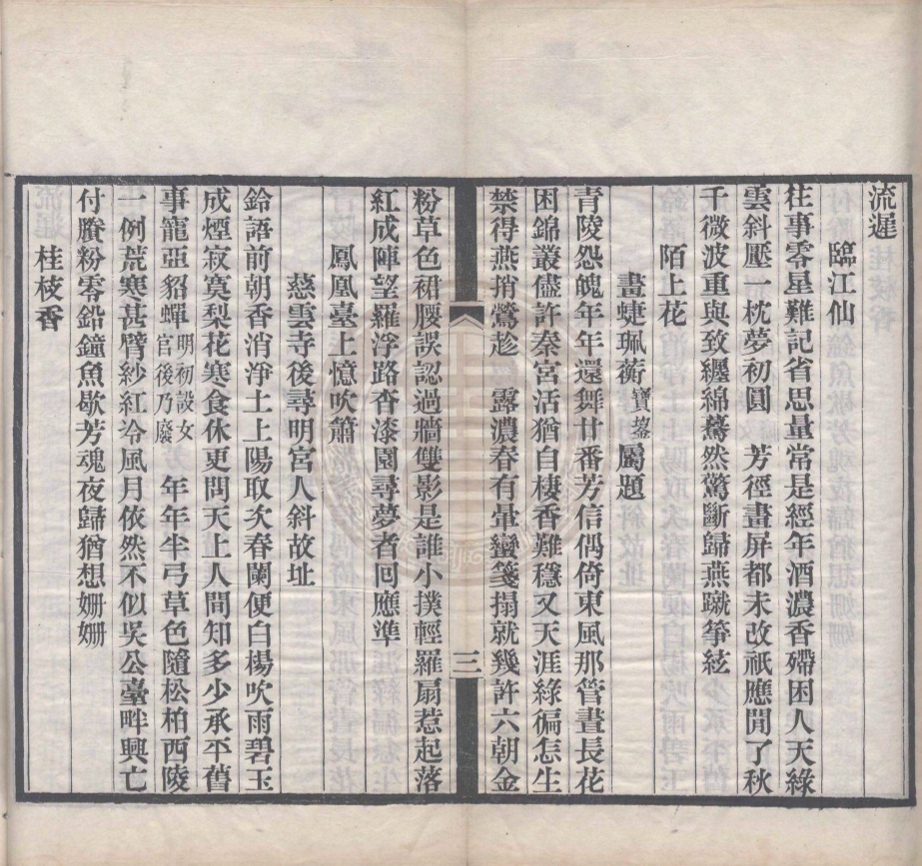 流遲
臨江仙
往事零星難記省思量常是經年酒濃香殢困人天綠
雲斜壓一枕夢初圓　芳徑畫屏都未改祇應閒了秋
千微波重與致纏綿驀然驚斷歸燕蹴箏絃
陌上花
畫蜨珮蘅寶鋆屬題
青陵怨魄年年還舞廿番芳信偶倚東風那管晝長花
困錦叢儘許秦宮活猶自棲香難穩又天涯綠徧怎生
禁得燕捎鶯趁　露濃春有暈蠻箋搨就幾許六朝金
三
粉草色裙腰誤認過牆雙影是誰小撲輕羅扇惹起落
紅成陣望羅浮路杳漆園尋夢者回應準
鳳凰臺上憶吹簫
慈雲寺後尋明宮人斜故址
鈴語前朝香消淨土上陽取次春闌便白楊吹雨碧玉
成煙寂寞梨花寒食休更問天上人間知多少承平舊
事寵亞貂蟬明初設女官後乃廢　年年半弓草色隨松柏西陵
一例荒寒甚臂紗紅冷風月依然不似吳公臺畔興亡
付賸粉零鉛鐘魚歇芳魂夜歸猶想姍姍
桂枝香